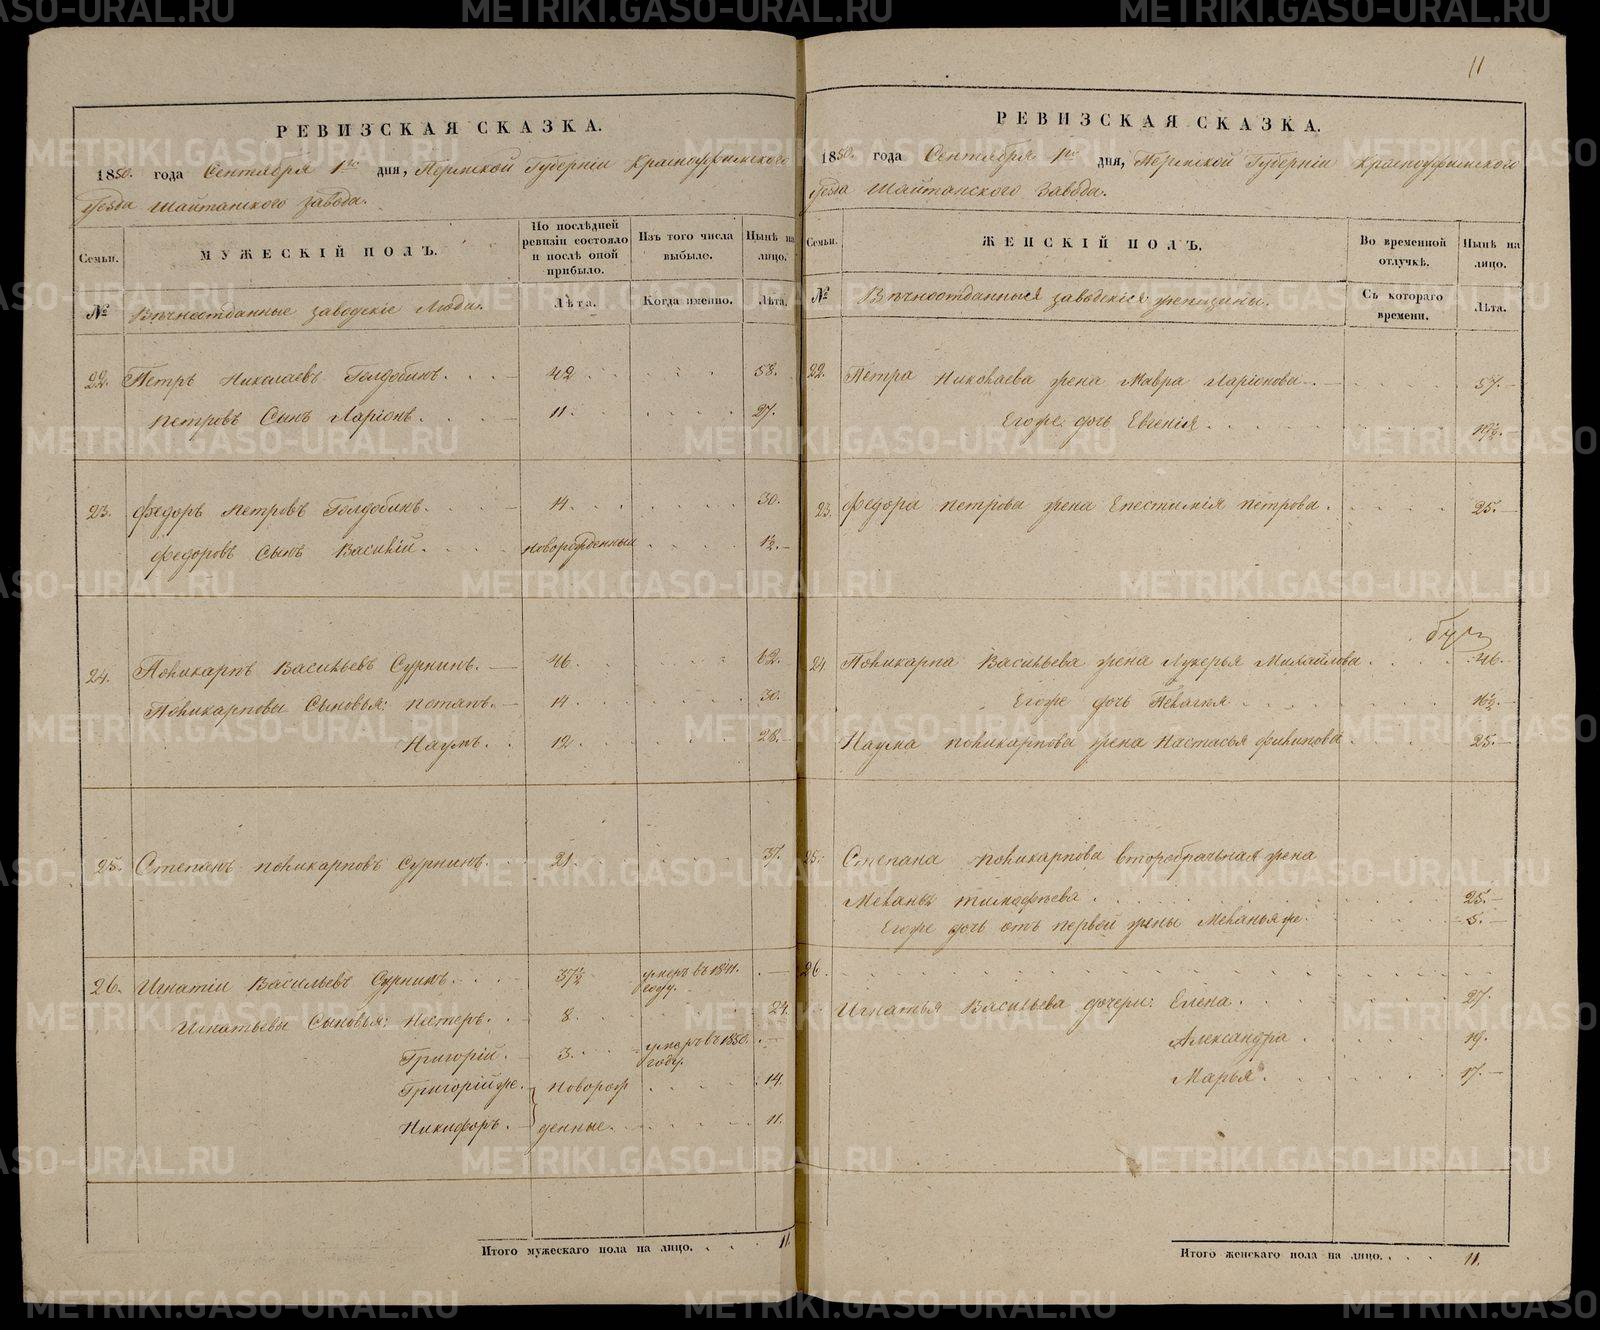 11
РЕВИЗСКАЯ СКАЗКА.
1850. года Сентября 1го дня, Пермской Губерніи Красноуфимского
уезда Шайтанского завода.
Семьи.
МУЖЕСКІЙ ПОЛЪ.
По послѣдней ревизіи состояло и послѣ оной прибыло.
Изъ того числа выбыло.
Нынѣ на лицо.
№
Вѣчноотданные заводскіе Люди.
Лѣта.
Когда именно.
Лѣта.
22. Петръ Николаевъ Голдобинъ. 42 58.
Петровъ Сынъ Ларіонъ. 11. 27.
23. Федоръ Петровъ Голдобинъ. 14. 30.
Федоровъ Сынъ Василій. Новорожденный 1½.
24. Поликарпъ Васильевъ Сурнинъ. 46. 62.
Поликарповы Сыновья: Потапъ. 14. 30.
Наумъ. 12. 28.
25. Степанъ Поликарповъ Сурнинъ. 21. 37.
26. Игнатій Васильевъ Сурнинъ. 37½ умеръ въ 1841.
году.
Игнатьевы Сыновья: Нестеръ. 8. 24.
Григорій. 3. умеръ въ 1850.
году.
Григорій же. Новорож 14.
Никифоръ. денные. 11.
Итого мужескаго пола на лицо. 11.
РЕВИЗСКАЯ СКАЗКА.
1850. года Сентября 1го дня, Пермской Губерніи Красноуфимского
уезда Шайтанского Завода.
Семьи.
ЖЕНСКІЙ ПОЛЪ.
Во временной отлучкѣ.
Нынѣ на лицо.
№
Вѣчноотданныя заводскія женщины.
Съ котораго времени.
Лѣта.
22. Петра Николаева жена Мавра Ларіонова. 57.
Егоже дочь Евгенія.
23. Федора Петрова жена Епестимія Петрова. 25.
24 Поликарпа Васильева жена Лукерья Михайлова 46.
Егоже дочь Пелагея 16½.
Наума Поликарпова жена Настасья Филипова 25.
25. Степана Поликарпова второбрачная жена
Меланья Тимофѣева. 25.
Егоже дочь отъ первой жены Меланья же. 5.
26.
Игнатья Васильева дочери: Елена. 27.
Александра 19.
Марья. 17.
Итого женскаго пола на лицо. 11.
METRIKI.GASO-URAL.RU